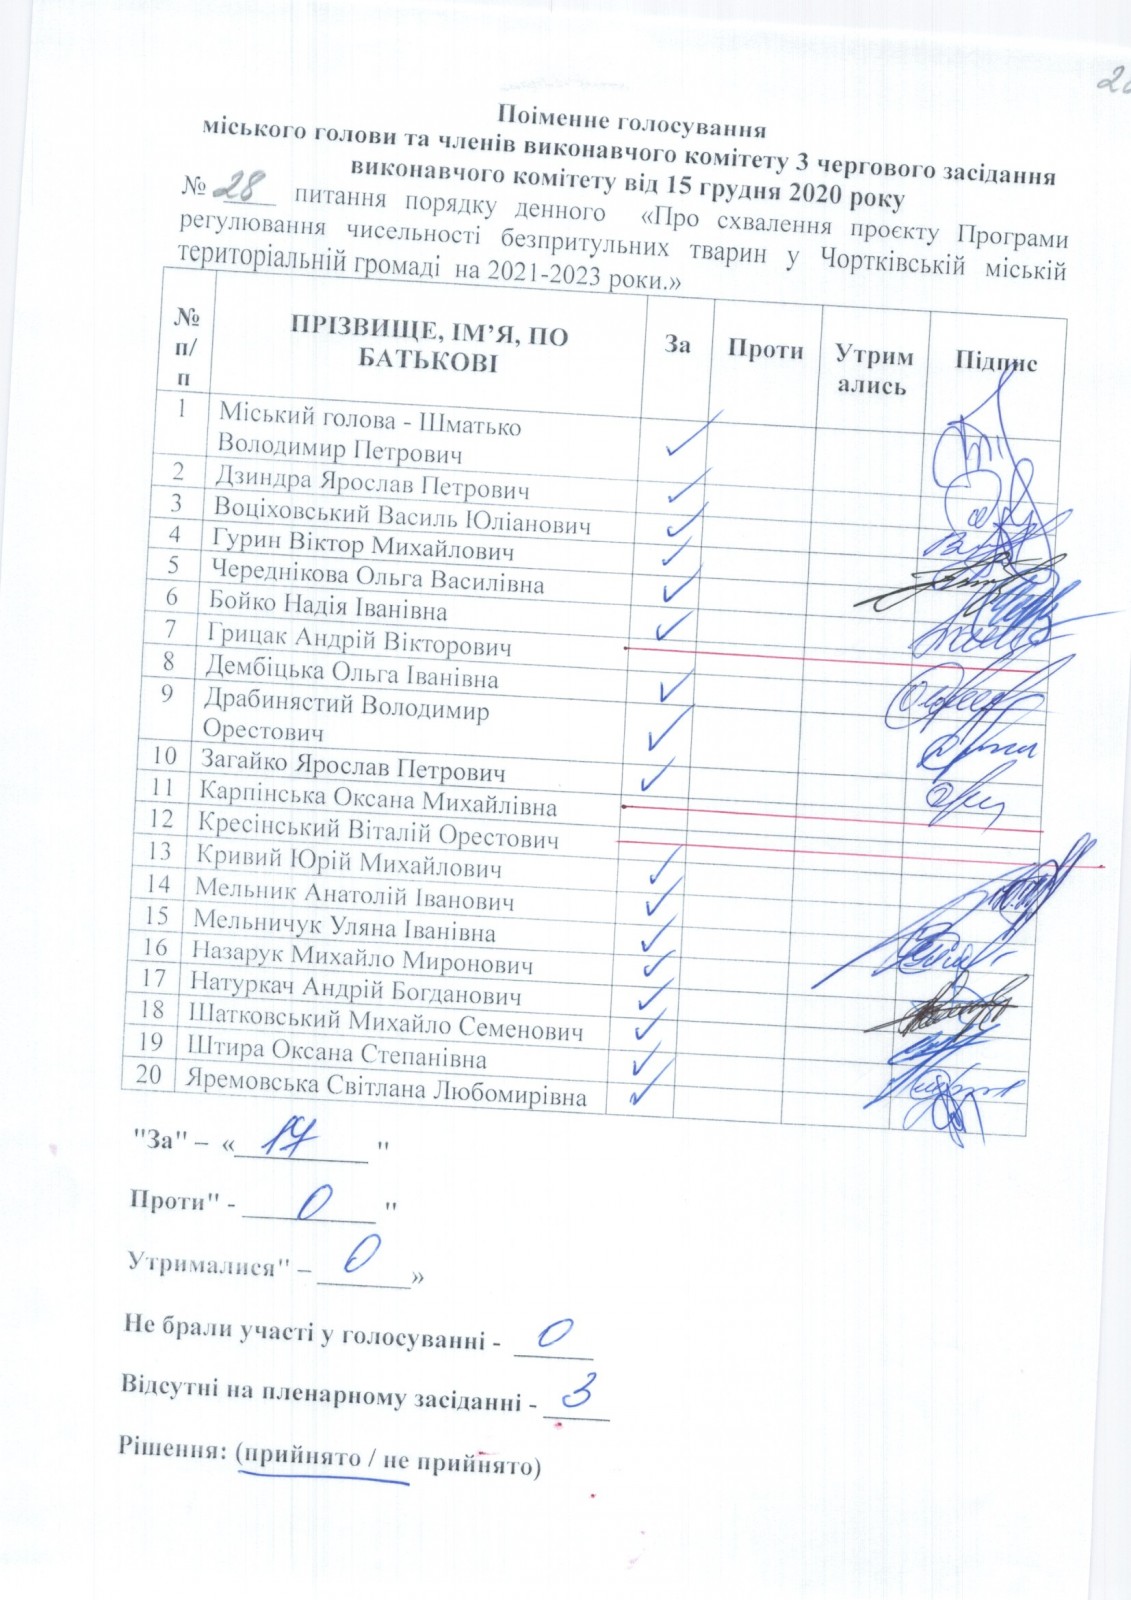 Поіменне голосування
міського голови та членів виконавчого комітету 3 чергового засідання
виконавчого комітету від 15 грудня 2020 року
№ 28 питання порядку денного «Про схвалення проєкту Програми
регулювання чисельності безпритульних тварин у Чортківській міській
територіальній громаді на 2021-2023 роки.»
№ п/п ПРІЗВИЩЕ, ІМ’Я, ПО БАТЬКОВІ За Проти Утримались Підпис
1 Міський голова - Шматько
Володимир Петрович ✓
2 Дзиндра Ярослав Петрович ✓
3 Воціховський Василь Юліанович ✓
4 Гурин Віктор Михайлович ✓
5 Череднікова Ольга Василівна ✓
6 Бойко Надія Іванівна ✓
7 Грицак Андрій Вікторович
8 Дембіцька Ольга Іванівна ✓
9 Драбинястий Володимир
Орестович ✓
10 Загайко Ярослав Петрович ✓
11 Карпінська Оксана Михайлівна
12 Кресінський Віталій Орестович
13 Кривий Юрій Михайлович ✓
14 Мельник Анатолій Іванович ✓
15 Мельничук Уляна Іванівна ✓
16 Назарук Михайло Миронович ✓
17 Натуркач Андрій Богданович ✓
18 Шатковський Михайло Семенович ✓
19 Штира Оксана Степанівна ✓
20 Яремовська Світлана Любомирівна ✓
"За" – « 17 "
Проти" - 0 "
Утрималися" – 0 »
Не брали участі у голосуванні - 0
Відсутні на пленарному засіданні - 3
Рішення: (прийнято / не прийнято)